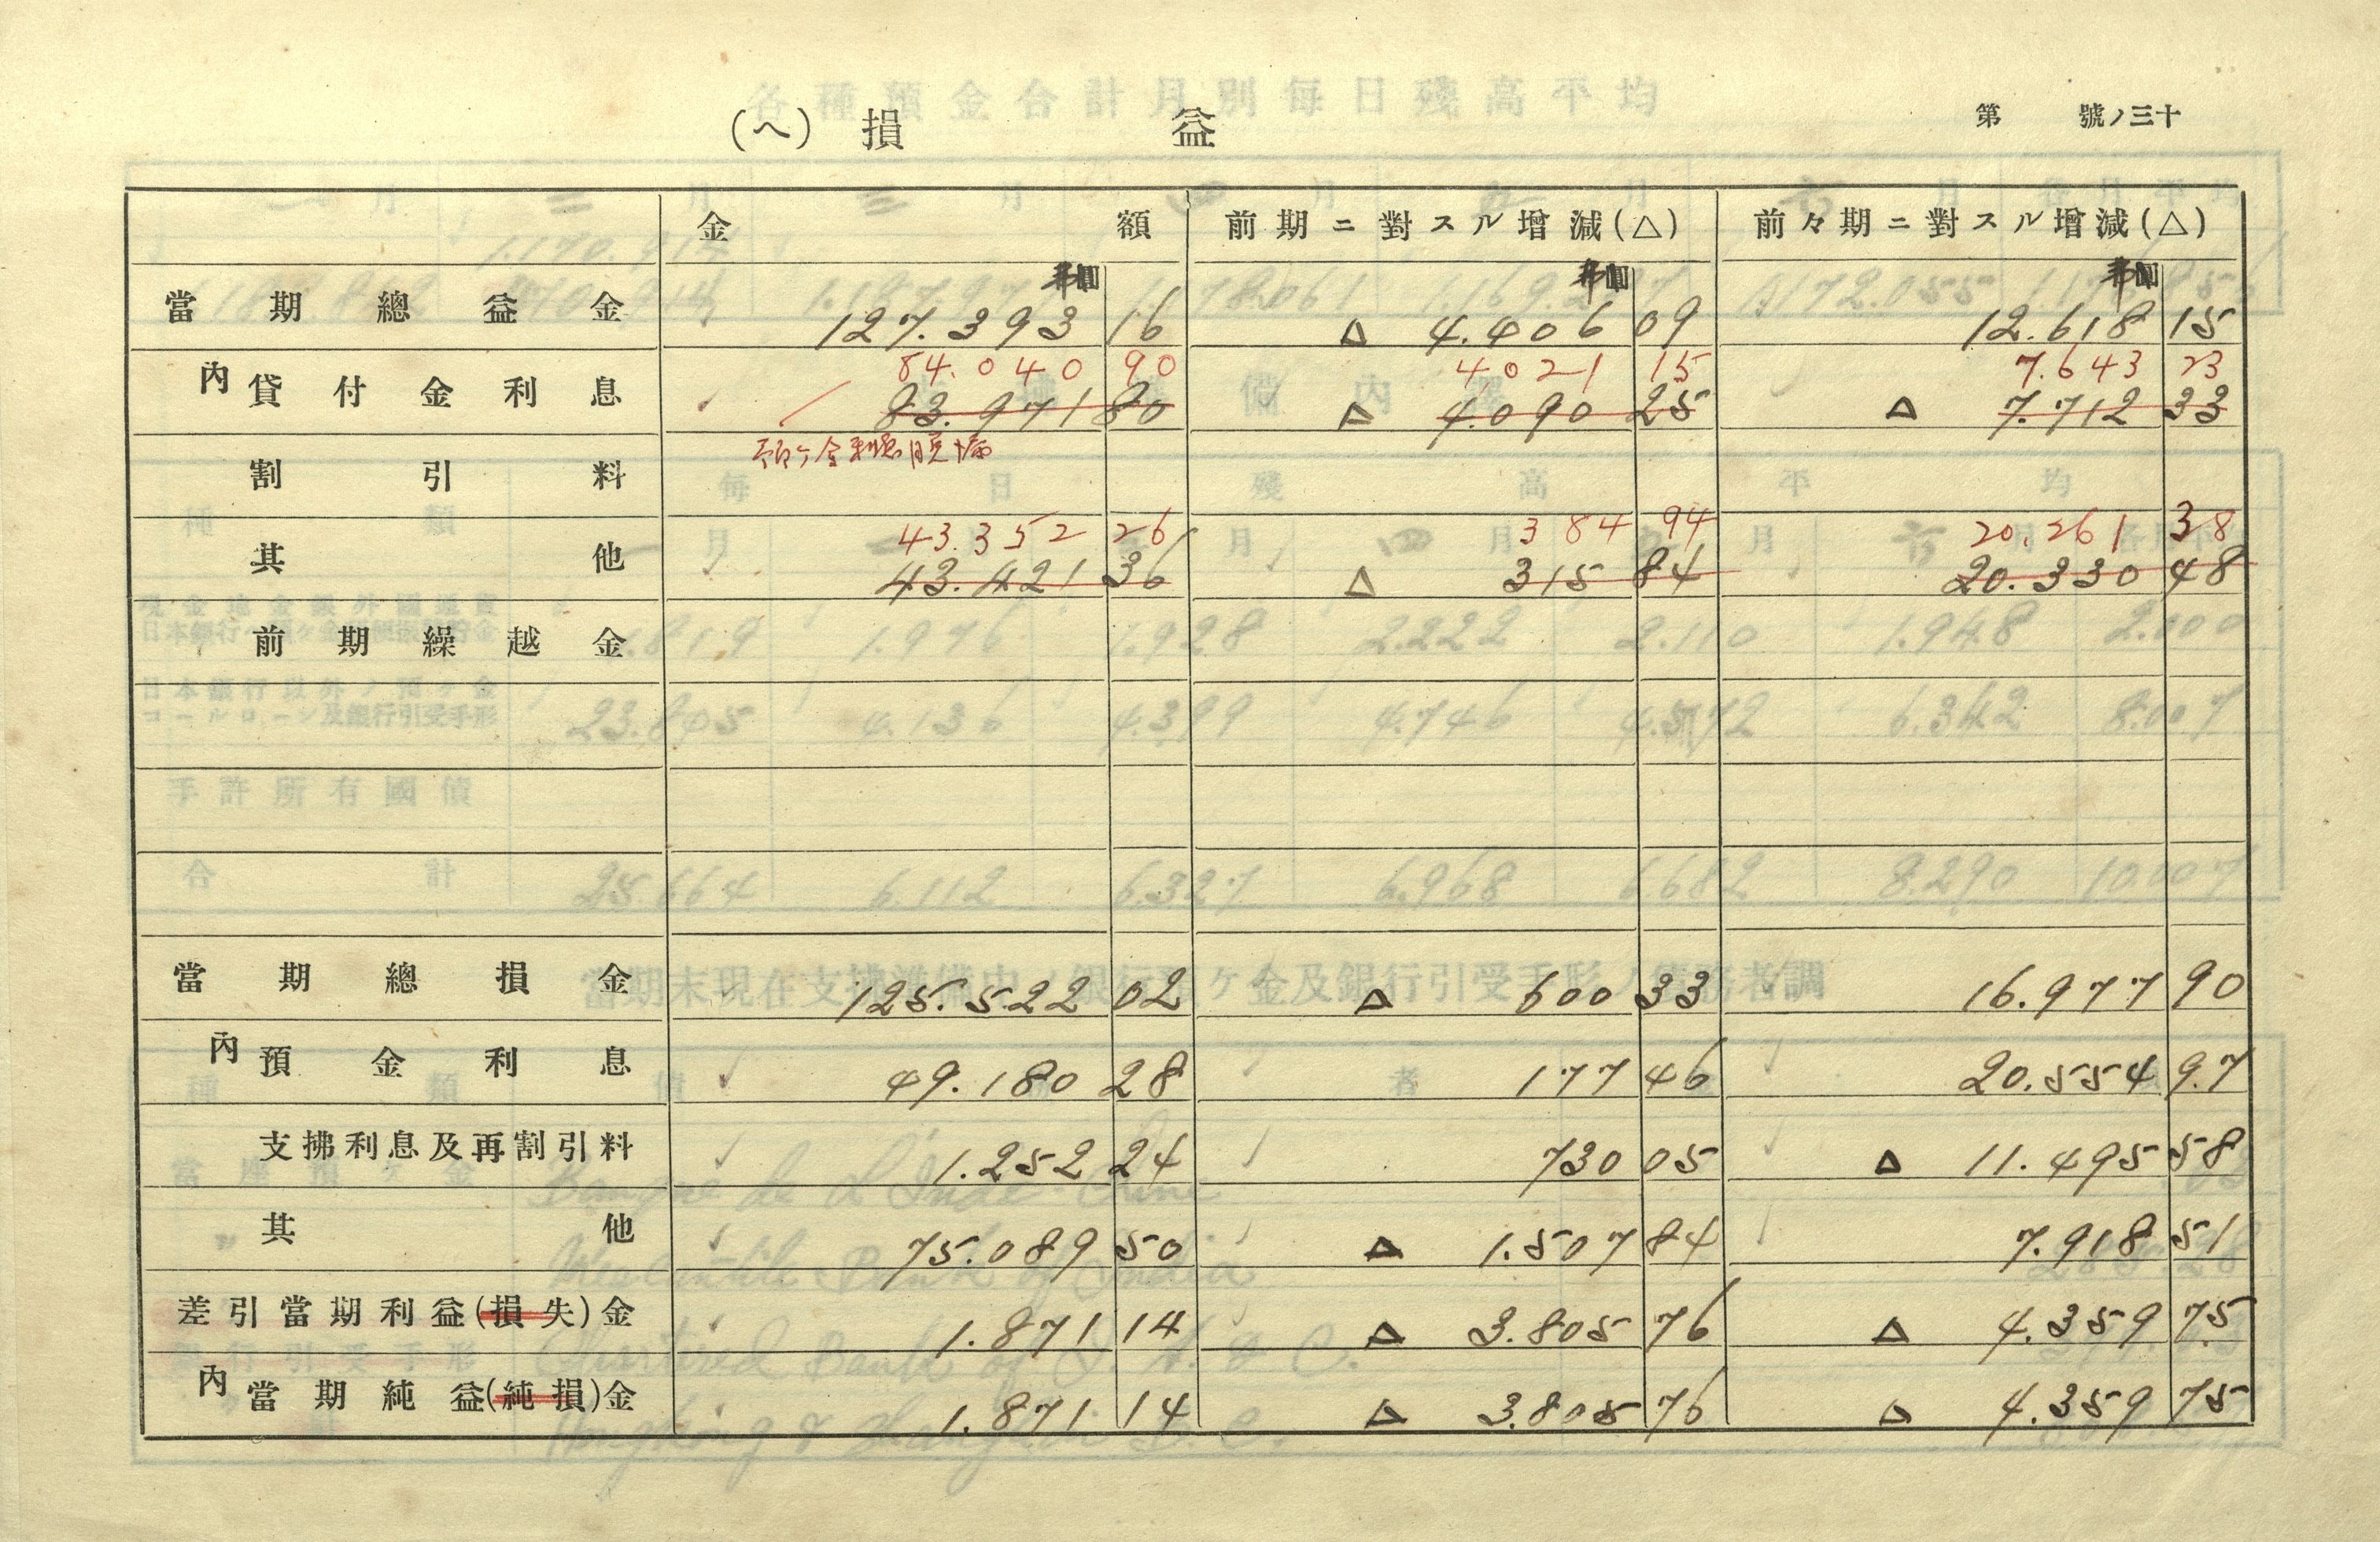 第 號ノ三十
(ヘ) 損 益
金 額 前期ニ對スル增減(△) 前々期ニ對スル增減(△)
弗 弗 弗
當期總益金 127.393 16 △ 4.406 09 12.618 15
84.040 90 4021 15 7.643 23
內 貸付金利息 83.971 80 △ 4.090 25 △ 7.712 33
預ケ金利息
割引料
43.352 26 384 94 20.261 38
其他 43.421 36 △ 315 84 20.330 48
前期繰越金
當期總損金 125.522 02 △ 600 33 16.977 90
內 預金利息 49.180 28 177 46 20.554 97
支拂利息及再割引料 1.252 24 730 05 △ 11.495 58
其他 75.089 50 △ 1.507 84 7.918 51
差引當期利益(損失)金 1.871 14 △ 3.805 76 △ 4.359 75
內 當期純益(純損)金 1.871 14 △ 3.805 76 △ 4.359 75